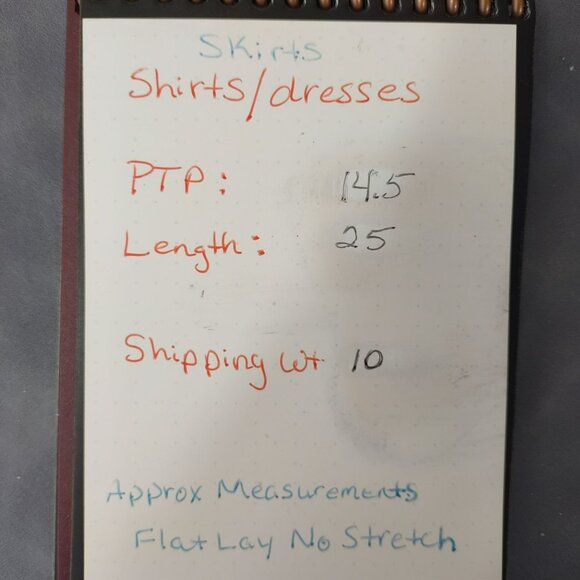 Skirts
Shirts/dresses
PTP: 14.5
Length: 25
Shipping Wt 10
Approx Measurements
Flat Lay No Stretch